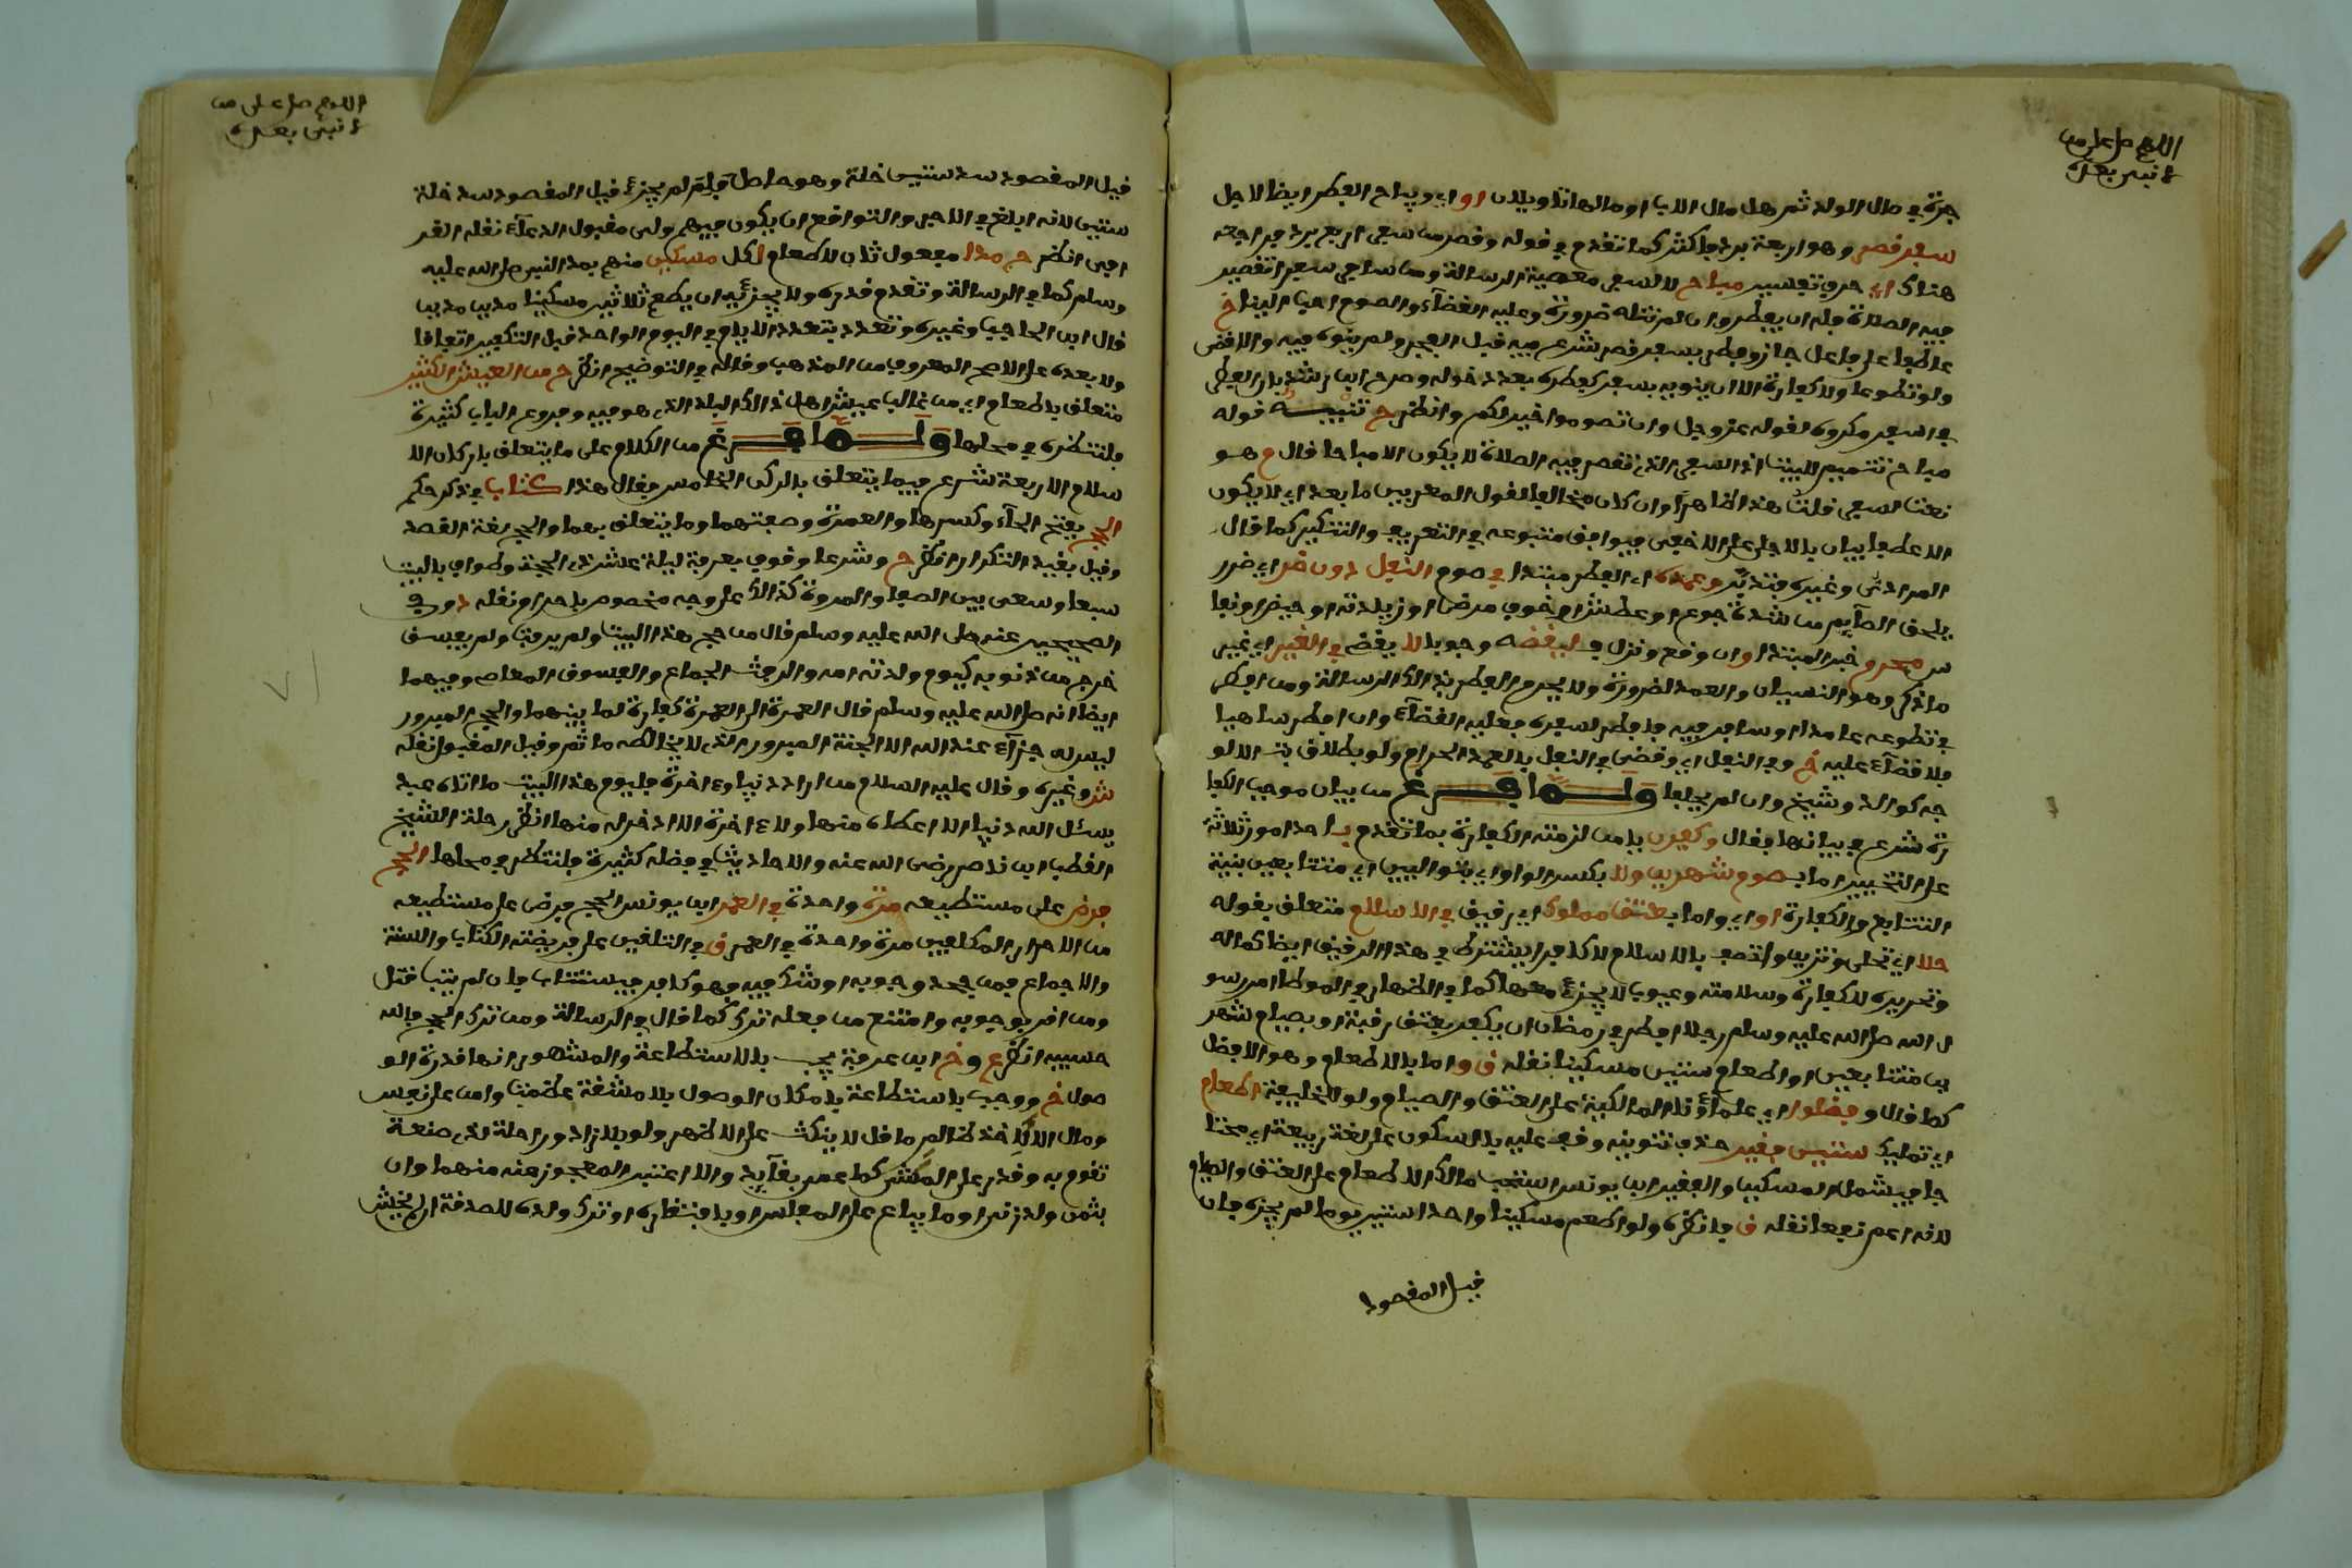 اللهم صل على من
لا نبي بعده
جرة في مال الولد ثم هل مال الاب او مالها تاويلان او اي ويباح الفطر ايضا لاجل
سفر قصر وهو اربعة برد فاكثر كما تقدم في قوله وقصر من سافر اربع برد فراجعه
هناك اي حرف تفسير مباح لا لسفر معصية الرسالة ومن سافر سفرا تقصر
فيه الصلاة فله ان يفطر وان لم تنله ضرورة وعليه القضاء والصوم احب الينا خ
عاطفا على فاعل جاز وفطر بسفر قصر شرع فيه قبل الفجر ولم ينوه فيه والا قضى
ولو تطوعا ولا كفارة الا ان ينويه بسفر كفطره بعد دخوله وصرح ابن رشد بان الفطر
في السفر مكروه لقوله عز وجل وان تصوموا خير لكم وانظر ح تنبيه قوله
مباح تتميم للبيت اذ السفر الذي تقصر فيه الصلاة لا يكون الا مباحا قال م هو
نعت لسفر قلت هذا ظاهر وان كان مخالفا لقول المعربين ما بعد اي لا يكون
الا عطف بيان بالاجلى على الاخفى فيوافق متبوعه في التعريف والتنكير كما قال
المرادي وغيره فتدبر وعمده اي الفطر مبتدا في صوم النفل دون ضر اي ضرر
يلحق الصائم من شدة جوع او عطش او خوف مرض او زيادته او حيض او نفا
س محرم خبر المبتدا وان وقع ونزل فـ ليقضه وجوبا لا يقض في الغير اي غير
ما ذكر وهو النسيان والعمد لضرورة ولا يحرم الفطر بذالك الرسالة ومن افطر
في تطوعه عامدا او سافر فيه فافطر لسفره فعليه القضاء وان افطر ساهيا
فلا قضاء عليه خ وفي النفل اي وقضى في النفل بالعمد الحرام ولو بطلاق بت الا لو
جه كوالد وشيخ وان لم يحلفا ولما فرغ من بيان موجب الكفا
رة شرع في بيانها فقال وكفرن يا من لزمته الكفارة بما تقدم باحد امور ثلاثة
على التخيير اما بـ صوم شهرين ولا بكسر الواو اي بتواليين اي متتابعين بنية
التتابع والكفارة او اي واما بعتق مملوك اي رقيق في الاسلام متعلق بقوله
حلا اي تحلى وتزين واتصف بالاسلام لا كافرا يشترط في هذا الرقيق ايضا كماله
وتحريره للكفارة وسلامته وعيوب لا يجزئ معها كما في الظهار في الموطا امر رسو
ل الله صل الله عليه وسلم رجلا افطر في رمضان ان يكفر بعتق رقبة او بصيام شهر
ين متتابعين او اطعام ستين مسكينا نقله ق و اما بالاطعام وهو الافضل
كما قال وفضلوا اي علماؤنا المالكية على العتق والصيام ولو للخليفة اطعام
اي تمليك ستين فقير حذف تنوينه وقف عليه بالسكون على لغة ربيعة اي محتا
جا فيشمل المسكين والفقير ابن يونس استحب مالك الاطعام على العتق والصيام
لانه اعم نفعا نقله ق فانظره ولو اطعم مسكينا واحدا ستين يوما لم يجزه فان
قيل المقصود
اللهم صل على من
لا نبي بعده
قيل المقصود سد ستين خلة وهو حاصل فلم لم يجزئ قيل المقصود سد خلة
ستين لانه ابلغ في الاجر والتواقع ان يكون فيهم ولي مقبول الدعاء نقله القر
افي انظر ح مدا مفعول ثان لاطعام لكل مسكين منهم بمد النبي صل الله عليه
وسلم كما في الرسالة وتقدم قدره ولا يجزئيه ان يطعم ثلاثين مسكينا مدين مدين
قال ابن الحاجب وغيره وتعدد بتعدد الايام في اليوم الواحد قبل التكفير اتفاقا
ولا بعده على الاصح المعروف من المذهب وقاله في التوضيح انظر ح من العيش الكثير
متعلق باطعام اي من غالب عيش اهل ذالك البلد الذي هو فيه وفروع الباب كثيرة
فلتنظره في محلها ولما فرغ من الكلام على ما يتعلق باركان الا
سلام الاربعة شرع فيما يتعلق بالركن الخامس فقال هذا كتاب في ذكر حكم
الحج بفتح الحاء وكسرها والعمرة وصفتهما وما يتعلق بهما والحج لغة القصد
وقيل بقيد التكرار انظر ح وشرعا وقوف بعرفة ليلة عشر ذي الحجة وطواف بالبيت
سبعا وسعى بين الصفا والمروة كذالك على وجه مخصوص باحرام نقله د وفي
الصحيحين عنه صلى الله عليه وسلم قال من حج هذا البيت ولم يرفث ولم يفسق
خرج من ذنوبه كيوم ولدته امه والرفث الجماع والفسوق المعاص وفيهما
ايضا انه صل الله عليه وسلم قال العمرة الى العمرة كفارة لما بينهما والحج المبرور
ليس له جزاء عند الله الا الجنة المبرور الذي لا يخالطه ماثم وقيل المقبول نقله
ش وغيره وقال عليه السلام من اراد دنيا وءاخرة فليوم هذا البيت ما اتاه عبد
يسئل الله دنيا الا اعطاه منها ولا ءاخرة الا ادخر له منها انظر رحلة الشيخ
القطب ابن ناصر رضي الله عنه والاحاديث في فضله كثيرة فلتنظر في محلها الحج
فرض على مستطيعه مرة واحدة في العمر ابن يونس الحج فرض على مستطيعه
من الاحرار المكلفين مرة واحدة في العمر ق في التلقين على فريضته الكتاب والسنة
والاجماع فمن جحد وجوبه او شك فيه فهو كافر فيستتاب فان لم يتب قتل
ومن اقر بوجوبه وامتنع من فعله ترك كما قال في الرسالة ومن ترك الحج فالله
حسيبه انظر ع و خ ابن عرفة يجب بالاستطاعة والمشهور انها قدرة الو
صول خ ووجب باستطاعة بامكان الوصول بلا مشقة عظمت وامن على نفس
ومال الا لاخذ ظالم ما قل لا ينكث على الاظهر ولو بلا زاد وراحلة لذي صنعة
تقوم به وقدر على المشي كاعمى بقائد والا اعتبر المعجوز عنه منهما وان
بثمن ولد زنى او ما يباع على المفلس او بافتقاره او ترك ولده للصدقة ان لم يخش